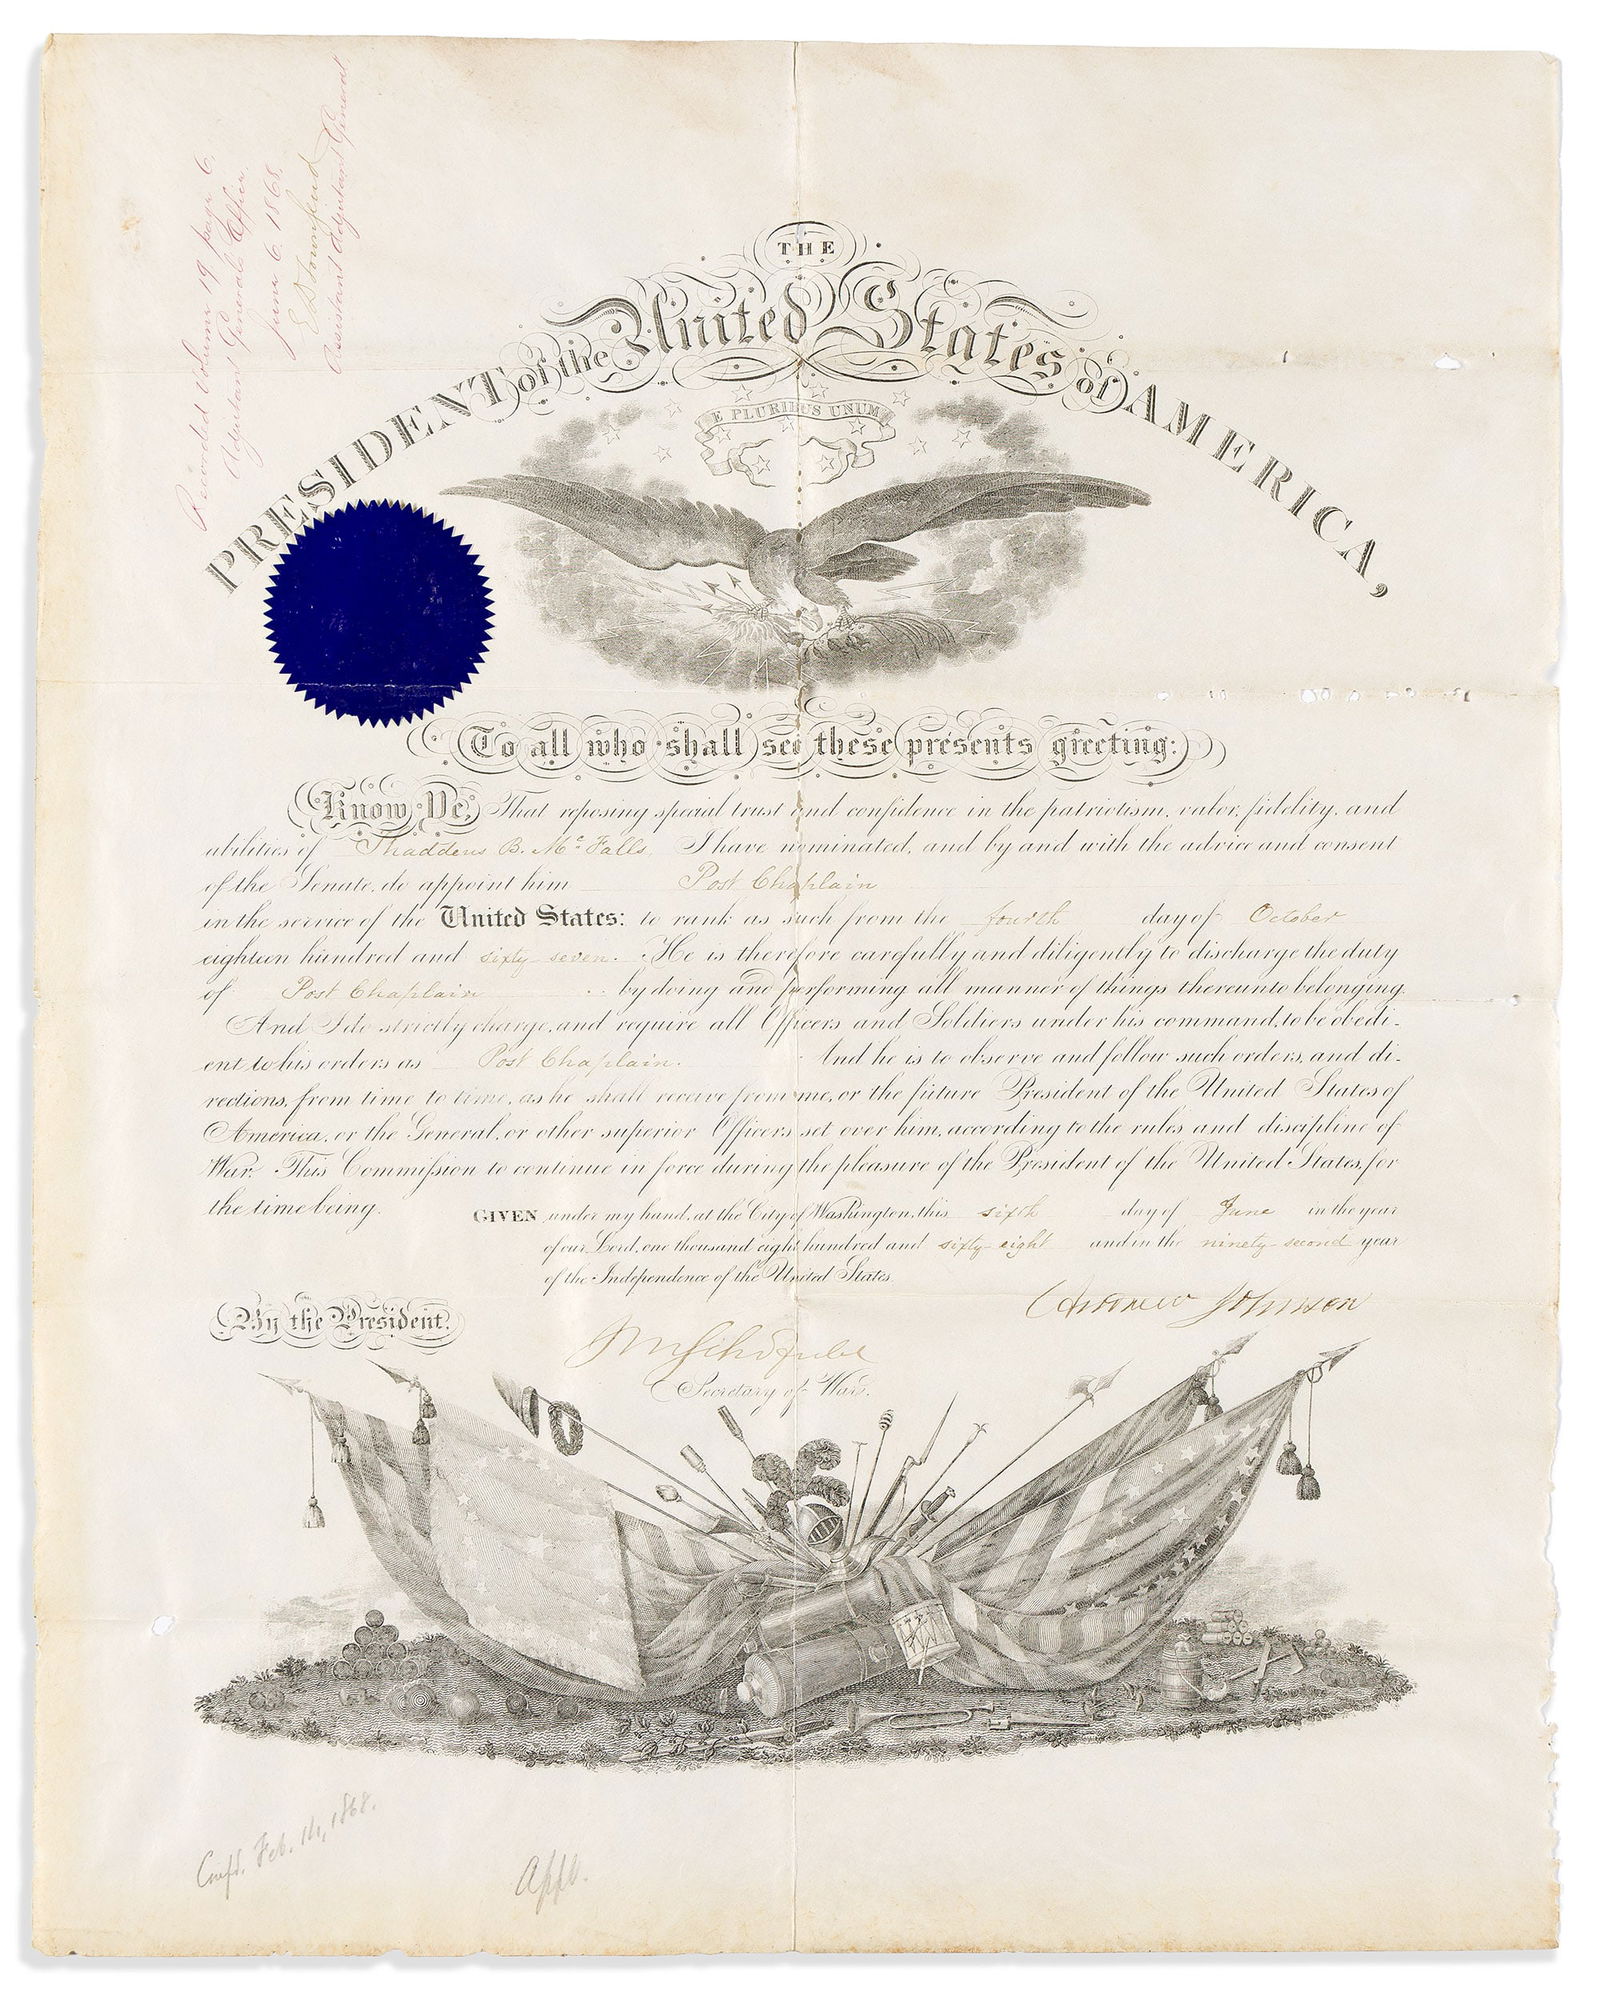 Recorded Volume 19 page 6,
Adjutant General Office,
June 6. 1868.
E D Townsend
Assistant Adjutant General
THE
PRESIDENT of the United States of AMERICA,
E PLURIBUS UNUM
To all who shall see these presents greeting:
Know Ye, That reposing special trust and confidence in the patriotism, valor, fidelity, and
abilities of Thaddeus B. McFalls, I have nominated, and by and with the advice and consent
of the Senate, do appoint him Post Chaplain
in the service of the United States: to rank as such from the fourth day of October
eighteen hundred and sixty seven. He is therefore carefully and diligently to discharge the duty
of Post Chaplain by doing and performing all manner of things thereunto belonging.
And I do strictly charge, and require all Officers and Soldiers under his command, to be obedi-
ent to his orders as Post Chaplain. And he is to observe and follow such orders, and di-
rections, from time to time, as he shall receive from me, or the future President of the United States of
America, or the General, or other superior Officers set over him, according to the rules and discipline of
War. This Commission to continue in force during the pleasure of the President of the United States, for
the time being.
GIVEN under my hand, at the City of Washington, this sixth day of June in the year
of our Lord, one thousand eight hundred and sixty eight and in the ninety second year
of the Independence of the United States.
Andrew Johnson
By the President.
JM Schofield
Secretary of War.
Conf'd. Feb. 14, 1868.